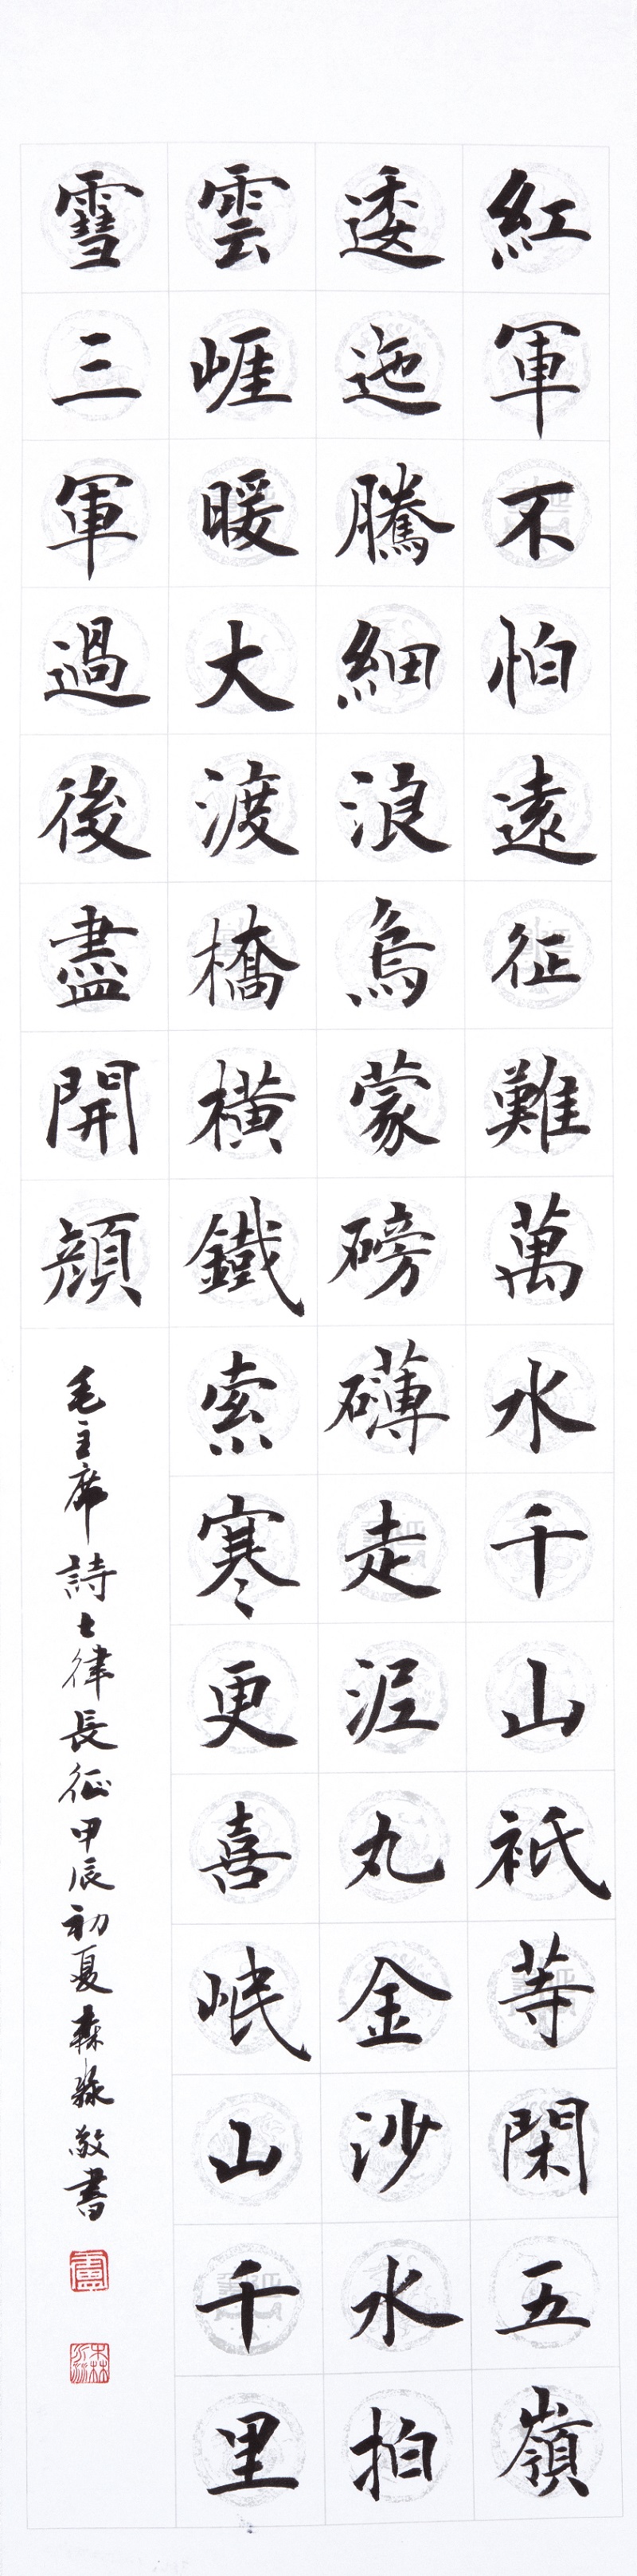 紅軍不怕遠征難萬水千山祇等閑五嶺
逶迤騰細浪烏蒙磅礴走泥丸金沙水拍
雲崕暖大渡橋橫鐵索寒更喜岷山千里
雪三軍過後盡開顏
毛主席詩七律長征甲辰初夏森淼敬書
盧
森淼